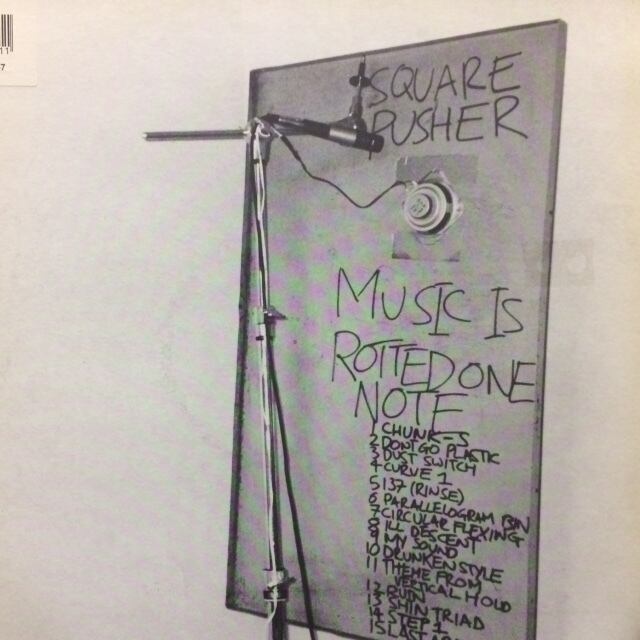 SQUARE
PUSHER
MUSIC IS
ROTTED ONE
NOTE
1 CHUNK-S
2 DON'T GO PLASTIC
3 DUST SWITCH
4 CURVE 1
5 137 (RINSE)
6 PARALLELOGRAM BIN
7 CIRCULAR FLEXING
8 ILL DESCENT
9 MY SOUND
10 DRUNKEN STYLE
11 THEME FROM
VERTICAL HOLD
12 RUIN
13 SHIN TRIAD
14 STEP 1
15 LAST